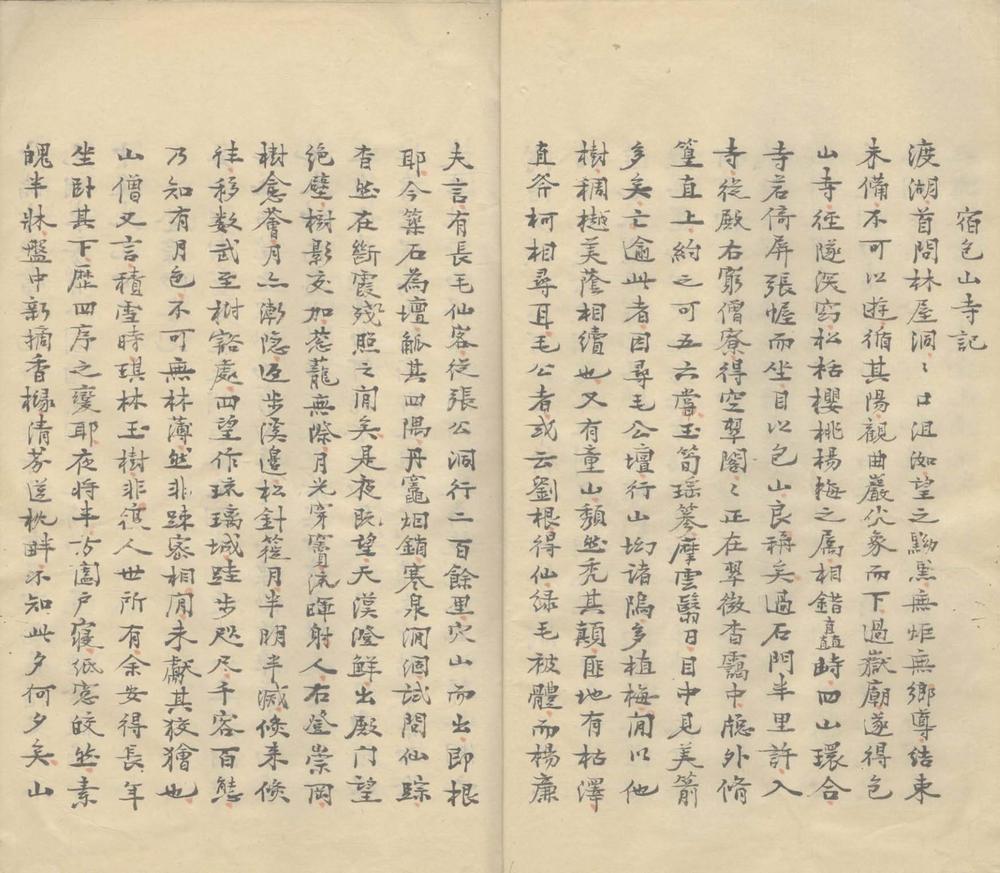 宿包山寺記
渡湖首問林屋洞〻口沮洳望之黝黑無炬無鄉導結束
未備不可以遊循其陽觀曲巖伏象而下過嶽廟遂得包
山寺徑隧深窈松栝櫻桃楊梅之屬相錯矗峙四山環合
寺若倚屏張幄而坐目以包山良稱矣過石門半里許入
寺從殿右窮僧寮得空翠閣〻正在翠微杳靄中牕外脩
篁直上約之可五六嘗玉筍瑤篸摩雲翳日目中見美箭
多矣亡逾此者因尋毛公壇行山坳諸隖多植梅間以他
樹稠樾美蔭相續也又有童山頳然禿其顛匪地有枯澤
直斧柯相尋耳毛公者或云劉根得仙綠毛被體而楊廉
夫言有長毛仙客從張公洞行二百餘里穴山而出即根
耶今築石為壇觚其四隅丹竈烟銷寒泉洞涸試問仙踪
杳然在斷霞殘照之間矣是夜既望天漢澄鮮出殿門望
絕壁樹影交加蔥蘢無際月光穿竇流暉射人右登崇岡
樹愈薈月亦漸隱返步溪邊松針簁月半明半滅倐來倐
往移數武至樹豁處四望作琉璃城跬步咫尺千容百態
乃知有月色不可無林薄然非疎密相間未獻其狡獪也
山僧又言積雪時琪林玉樹非復人世所有余安得長年
坐卧其下歷四序之變耶夜將半方闔戶寢紙窻皎然素
魄半牀盤中新摘香櫞清芬送枕畔不知此夕何夕矣山